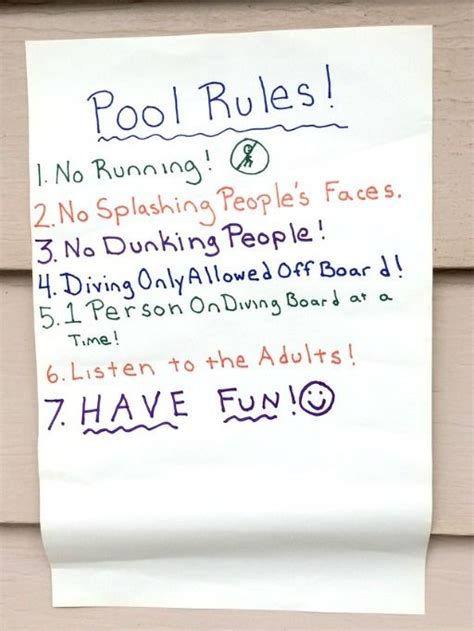 Pool Rules!
1. No Running!
2. No Splashing People's Faces.
3. No Dunking People!
4. Diving Only Allowed Off Board!
5. 1 Person On Diving Board at a
Time!
6. Listen to the Adults!
7. HAVE FUN!